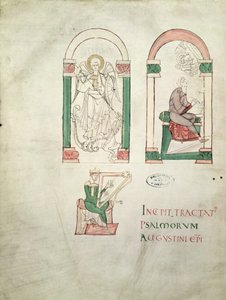 INCEPIT TRACTAT'
PSALMORUM
AUGUSTINI EPI